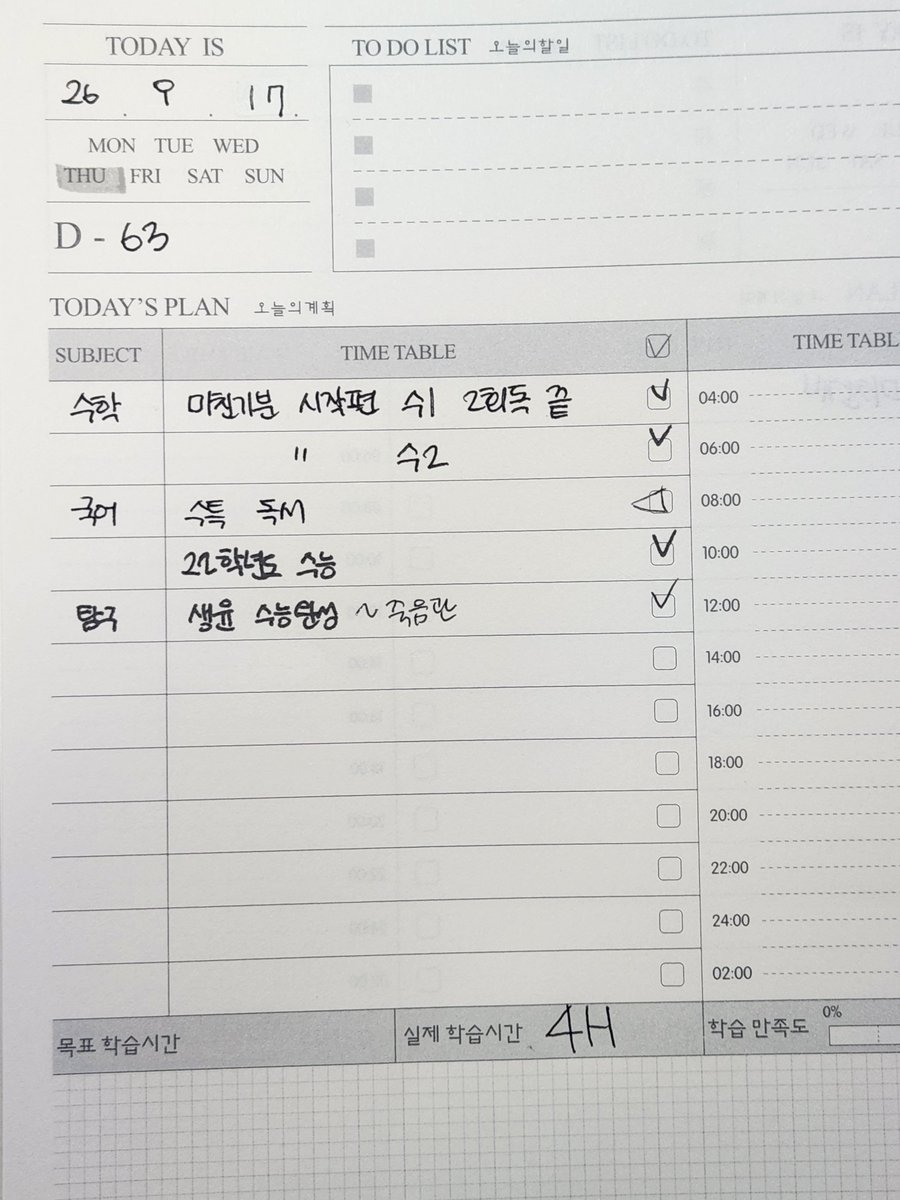 TODAY IS
26 . 9 . 17.
MON TUE WED
THU FRI SAT SUN
D - 63
TO DO LIST 오늘의할일
TODAY'S PLAN 오늘의계획
SUBJECT TIME TABLE
수학 미친기분 시작편 수1 2회독 끝
" 수2
국어 수특 독서
22학년도 수능
탐구 생윤 수능완성 ~죽음관
TIME TABL
04:00
06:00
08:00
10:00
12:00
14:00
16:00
18:00
20:00
22:00
24:00
02:00
목표 학습시간
실제 학습시간 4H
학습 만족도 0%